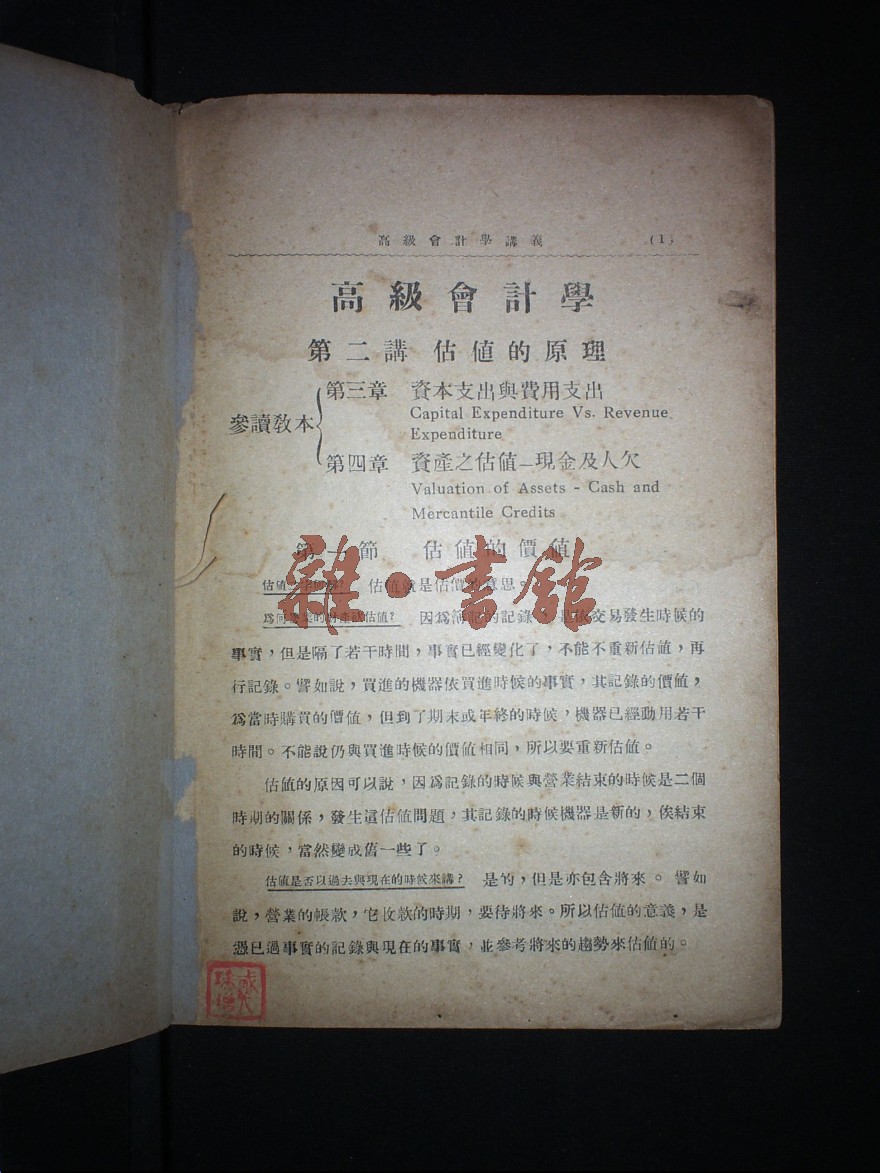 高級會計學講義 (1)
高級會計學
第二講 估值的原理
參讀教本
第三章 資本支出與費用支出
Capital Expenditure Vs. Revenue
Expenditure
第四章 資產之估值—現金及人欠
Valuation of Assets - Cash and
Mercantile Credits
第一節 估值的價值
估值 估值就是估價的意思。
爲何 估值? 因爲簿記的記錄, 是依交易發生時候的
事實,但是隔了若干時間,事實已經變化了,不能不重新估值,再
行記錄。譬如說,買進的機器依買進時候的事實,其記錄的價值,
爲當時購買的價值,但到了期末或年終的時候,機器已經動用若干
時間。不能說仍與買進時候的價值相同,所以要重新估值。
估值的原因可以說,因爲記錄的時候與營業結束的時候是二個
時期的關係,發生這估值問題,其記錄的時候機器是新的,俟結束
的時候,當然變成舊一些了。
估值是否以過去與現在的時候來講? 是的,但是亦包含將來。譬如
說,營業的帳款,它收款的時期,要待將來。所以估值的意義,是
憑已過事實的記錄與現在的事實,並參考將來的趨勢來估值的。
雜·書館